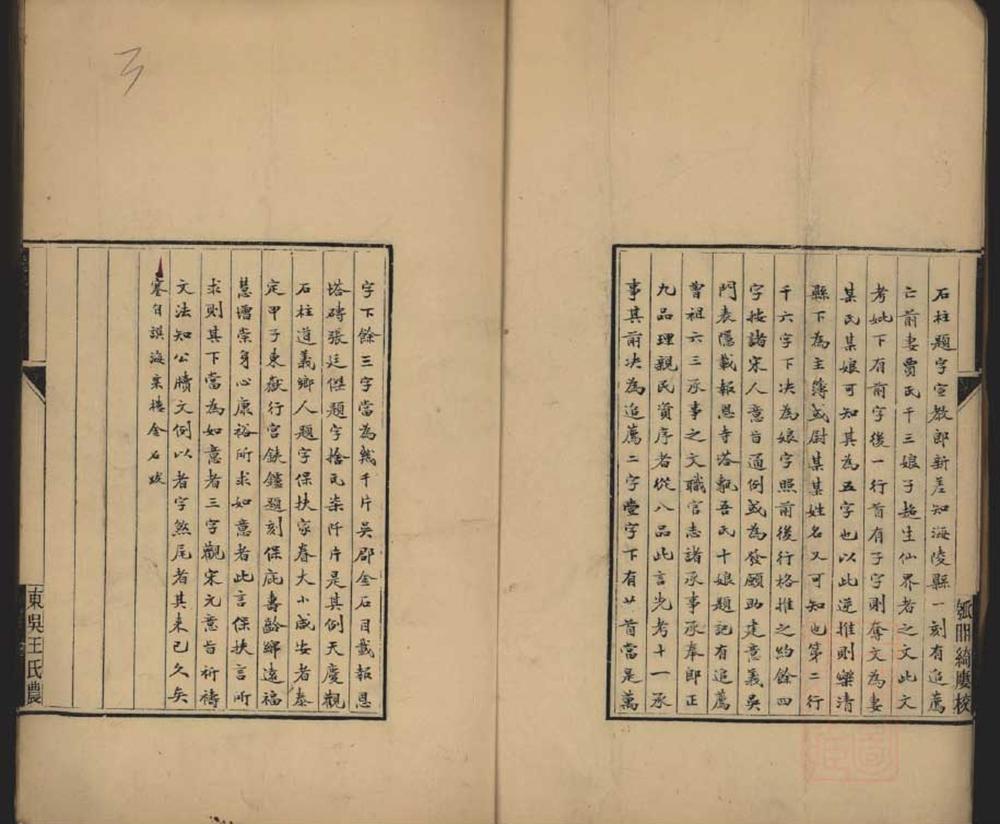 石柱題字宣教郎新差知海陵縣一刻有追薦
亡前妻賈氏千三娘子超生仙界者之文此文
考妣下有前字後一行首有子字則奪文為妻
某氏某娘可知其為五字也以此逆推則樂清
縣下為主簿或尉某某姓名又可知也第二行
千六字下決為娘字照前後行格推之約餘四
字按諸宋人意旨通例或為發願助建意義吳
門表隱載報恩寺塔甎吾氏十娘題記有追薦
曾祖六三承事之文職官志諸承事承奉郎正
九品理親民資序者從八品此言先考十一承
事其前決為追薦二字壹字下有艹首當是萬
瓠閒綺廔校
字下餘三字當為幾千片吳郡金石目載報恩
塔磚張廷傑題字捨瓦柒阡片是其例天慶觀
石柱道義鄉人題字保扶家眷大小咸安者泰
定甲子東嶽行宮鐵鑪題刻保庇壽齡綿遠福
慧增崇身心康裕所求如意者此言保扶言所
求則其下當為如意者三字觀宋元意旨祈禱
文法知公牘文例以者字煞尾者其來已久矣
蹇自譔海粟樓金石跋
東吳王氏農